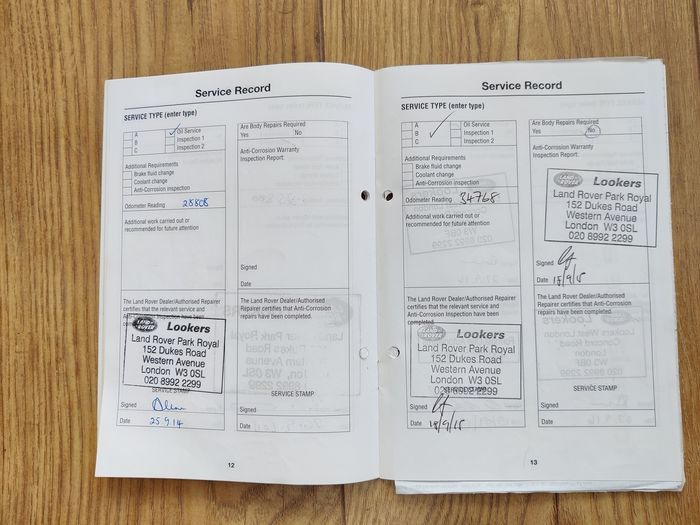 Service Record
SERVICE TYPE (enter type)
A
B
C
Oil Service
Inspection 1
Inspection 2
Additional Requirements
Brake fluid change
Coolant change
Anti-Corrosion inspection
Odometer Reading 28808
Additional work carried out or
recommended for future attention
The Land Rover Dealer/Authorised Repairer
certifies that the relevant service and
LAND ROVER
Lookers
Land Rover Park Royal
152 Dukes Road
Western Avenue
London W3 0SL
020 8992 2299
SERVICE STAMP
Signed
Date 25 9 14
Are Body Repairs Required
Yes No
Anti-Corrosion Warranty
Inspection Report:
Signed
Date
The Land Rover Dealer/Authorised
Repairer certifies that Anti-Corrosion
repairs have been completed.
SERVICE STAMP
Signed
Date
12
Service Record
SERVICE TYPE (enter type)
A
B
C
Oil Service
Inspection 1
Inspection 2
Additional Requirements
Brake fluid change
Coolant change
Anti-Corrosion inspection
Odometer Reading 34768
Additional work carried out or
recommended for future attention
The Land Rover Dealer/Authorised Repairer
certifies that the relevant service and
Anti-Corrosion Inspection have been
completed.
LAND ROVER
Lookers
Land Rover Park Royal
152 Dukes Road
Western Avenue
London W3 0SL
020 8992 2299
Signed
Date 18/9/15
Are Body Repairs Required
Yes No
Anti-Corrosion Warranty
Inspection Report:
LAND ROVER
Lookers
Land Rover Park Royal
152 Dukes Road
Western Avenue
London W3 0SL
020 8992 2299
Signed
Date 18/9/15
The Land Rover Dealer/Authorised
Repairer certifies that Anti-Corrosion
repairs have been completed.
SERVICE STAMP
Signed
Date
13